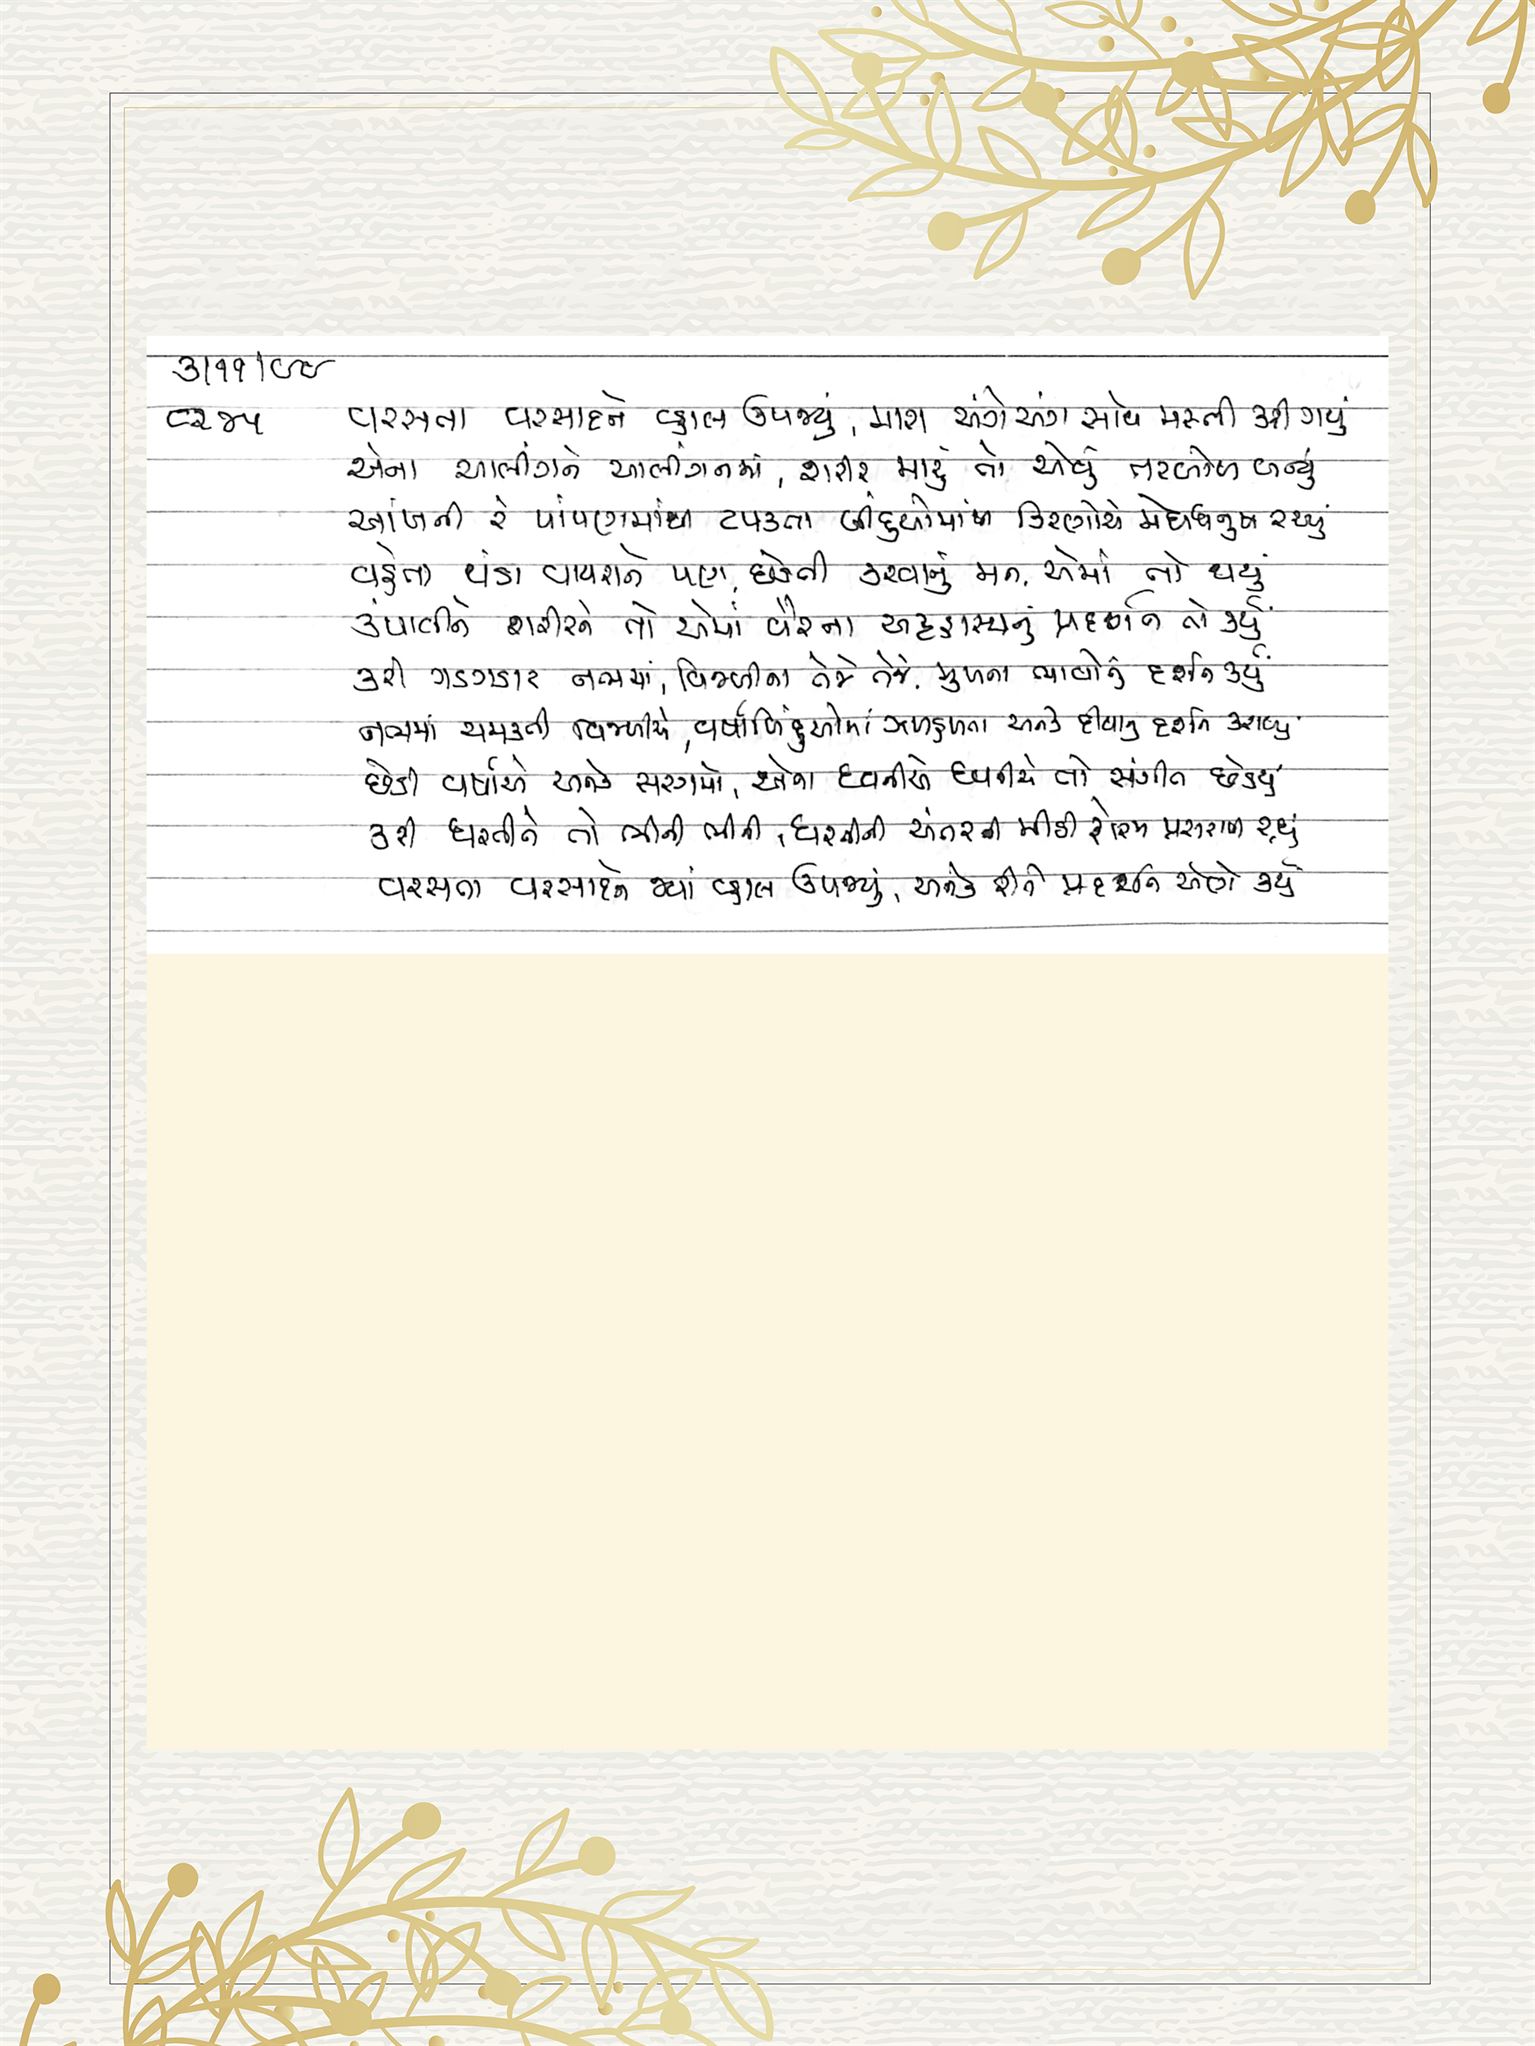 ૩/૧૧/૯૯
૮૨૪૫ વરસતા વરસાદને વ્હાલ ઉપજ્યું, મારા અંગેઅંગ સાથે મસ્તી કરી ગયું
એના આલીંગને આલીંગનમાં, શરીર મારું તો એવું તરબોળ બન્યું
આંખની રે પાંપણમાંથી ટપકતા બીંદુઓમાંથી કિરણોએ મેઘધનુષ રચ્યું
વહેતા થંડા વાયરાને પણ, છેડતી કરવાનું મન, એમાં તો થયું
કંપાવીને શરીરને તો એમાં વૈરના અટ્ટહાસ્યનું પ્રદર્શન તો કર્યું
કરી ગડગડાટ નભમાં, વિજળીના તેજે તેજે, મુખના ભાવોનું દર્શન કર્યું
નભમાં ચમકતી વિજળીએ, વર્ષાબિંદુઓમાં ઝળહળતા અનેક દીવાનુ દર્શન કરાવ્યુ
છેડી વર્ષાએ અનેક સરગમો, એના ધ્વનીએ ધ્વનીએ તો સંગીત છેડયું
કરી ધરતીને તો ભીની ભીની, ધરતીની અંતરની મીઠી ફોરમ પ્રસરાવી રહ્યું
વરસતા વરસાદને જ્યાં વ્હાલ ઉપજ્યું, અનેક રીતે પ્રદર્શન એણે કર્યું